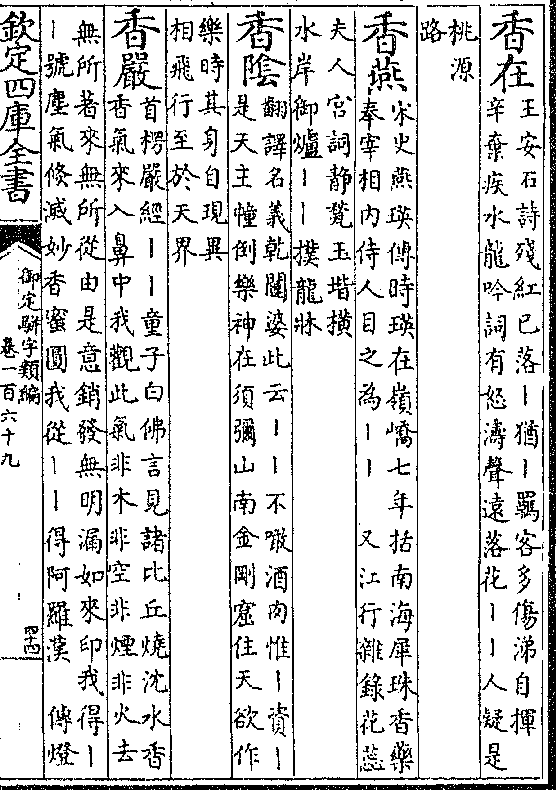 香在
王安石詩殘紅已落丨猶丨羈客多傷涕自揮
辛棄疾水龍吟詞有怒濤聲遠落花丨丨人疑是
桃源
路
香燕
宋史燕瑛傳時瑛在嶺嶠七年括南海犀珠香藥
奉宰相内侍人目之為丨丨　又江行雜録花蕊
夫人宮詞静甃玉堦横
水岸御爐丨丨撲龍牀
香陰
翻譯名義乾闥婆此云丨丨不噉酒肉惟丨資丨
是天主幢倒樂神在須彌山南金剛窟住天欲作
樂時其身自現異
相飛行至於天界
香嚴
首楞嚴經丨丨童子白佛言見諸比丘燒沈水香
香氣來入鼻中我觀此氣非木非空非煙非火去
無所著來無所從由是意銷發無明漏如來印我得丨
丨號塵氣倐滅妙香蜜圓我從丨丨得阿羅漢　傳燈
欽定四庫全書
御定駢字類編
卷一百六十九
四十四